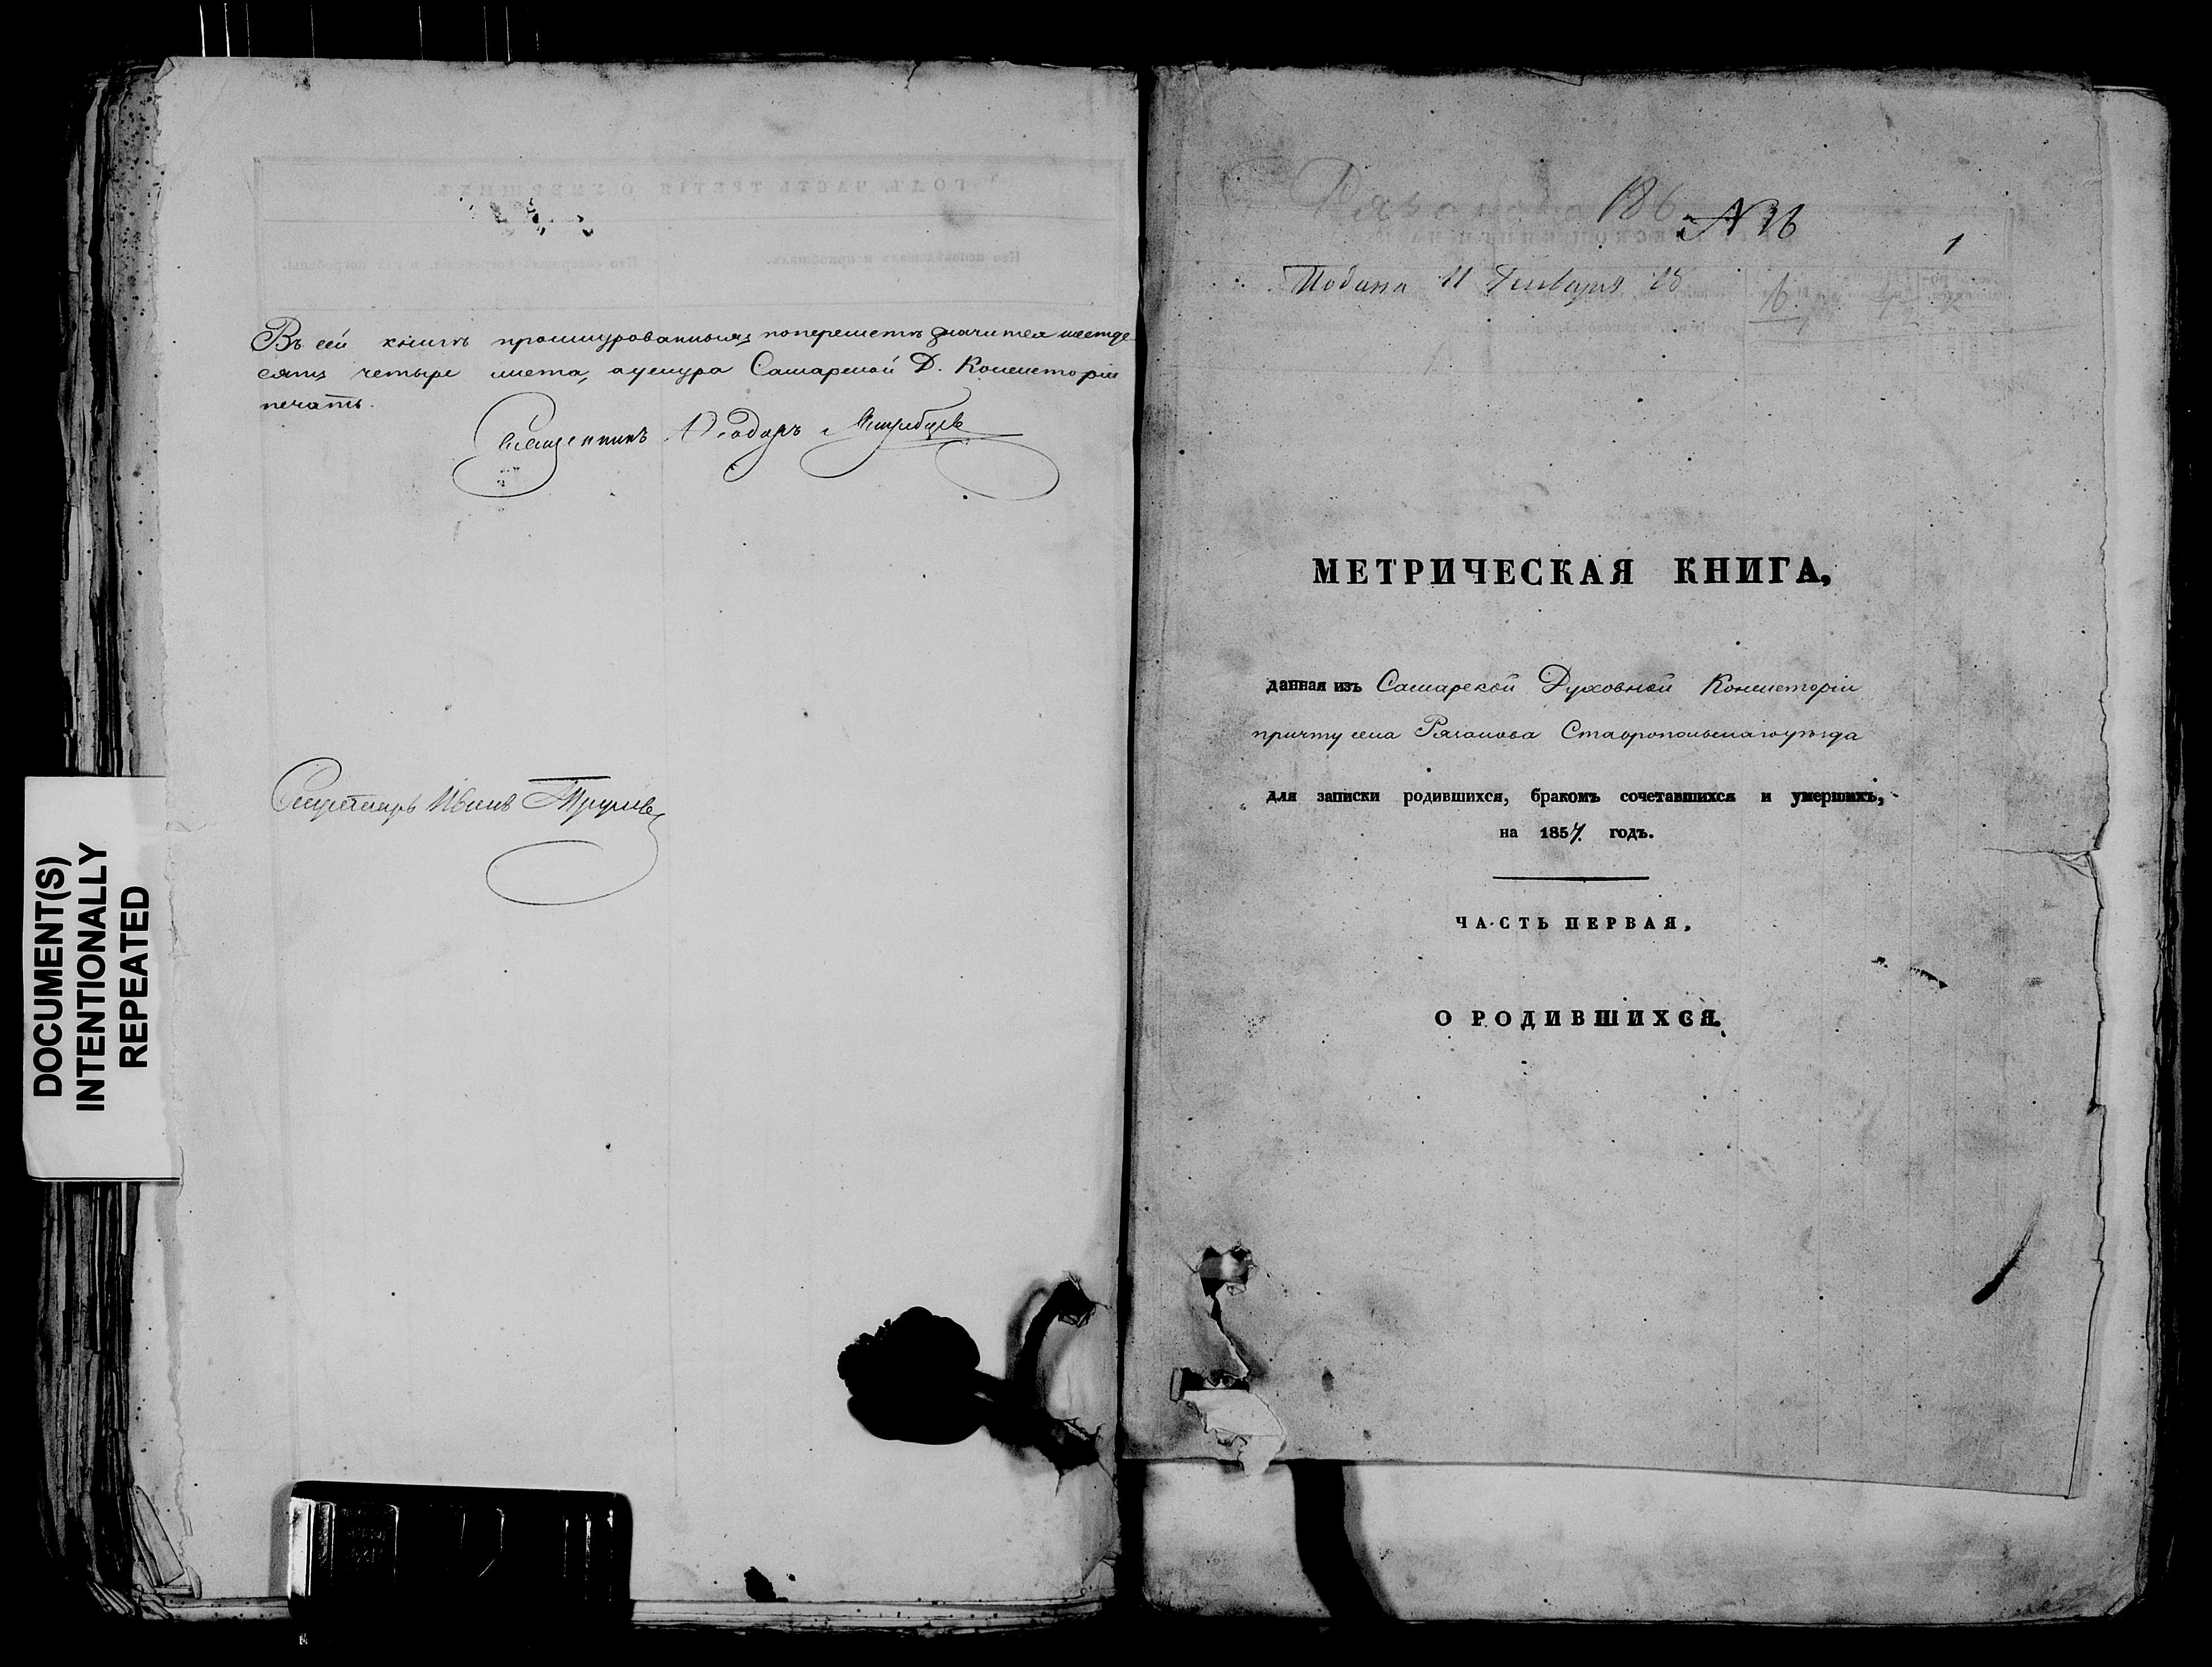 Въ сей книгѣ прошнурованныхъ поперешетъ значится шестьде
сятъ четыре листа, а у шнура Самарской Д. Консисторіи
печать.
Священникъ Ѳеодоръ Ястребцев
Секретарь Иванъ
DOCUMENT(S)
INTENTIONALLY
REPEATED
Рязаново 186
№ 16
1
Подана 11 Генваря 18
МЕТРИЧЕСКАЯ КНИГА,
данная изъ Самарской Духовной Консисторіи
причту села Рязанова Ставропольскаго уѣзда
для записки родившихся, бракомъ сочетавшихся и умершихъ,
на 1857. годъ.
ЧАСТЬ ПЕРВАЯ,
О РОДИВШИХСЯ.